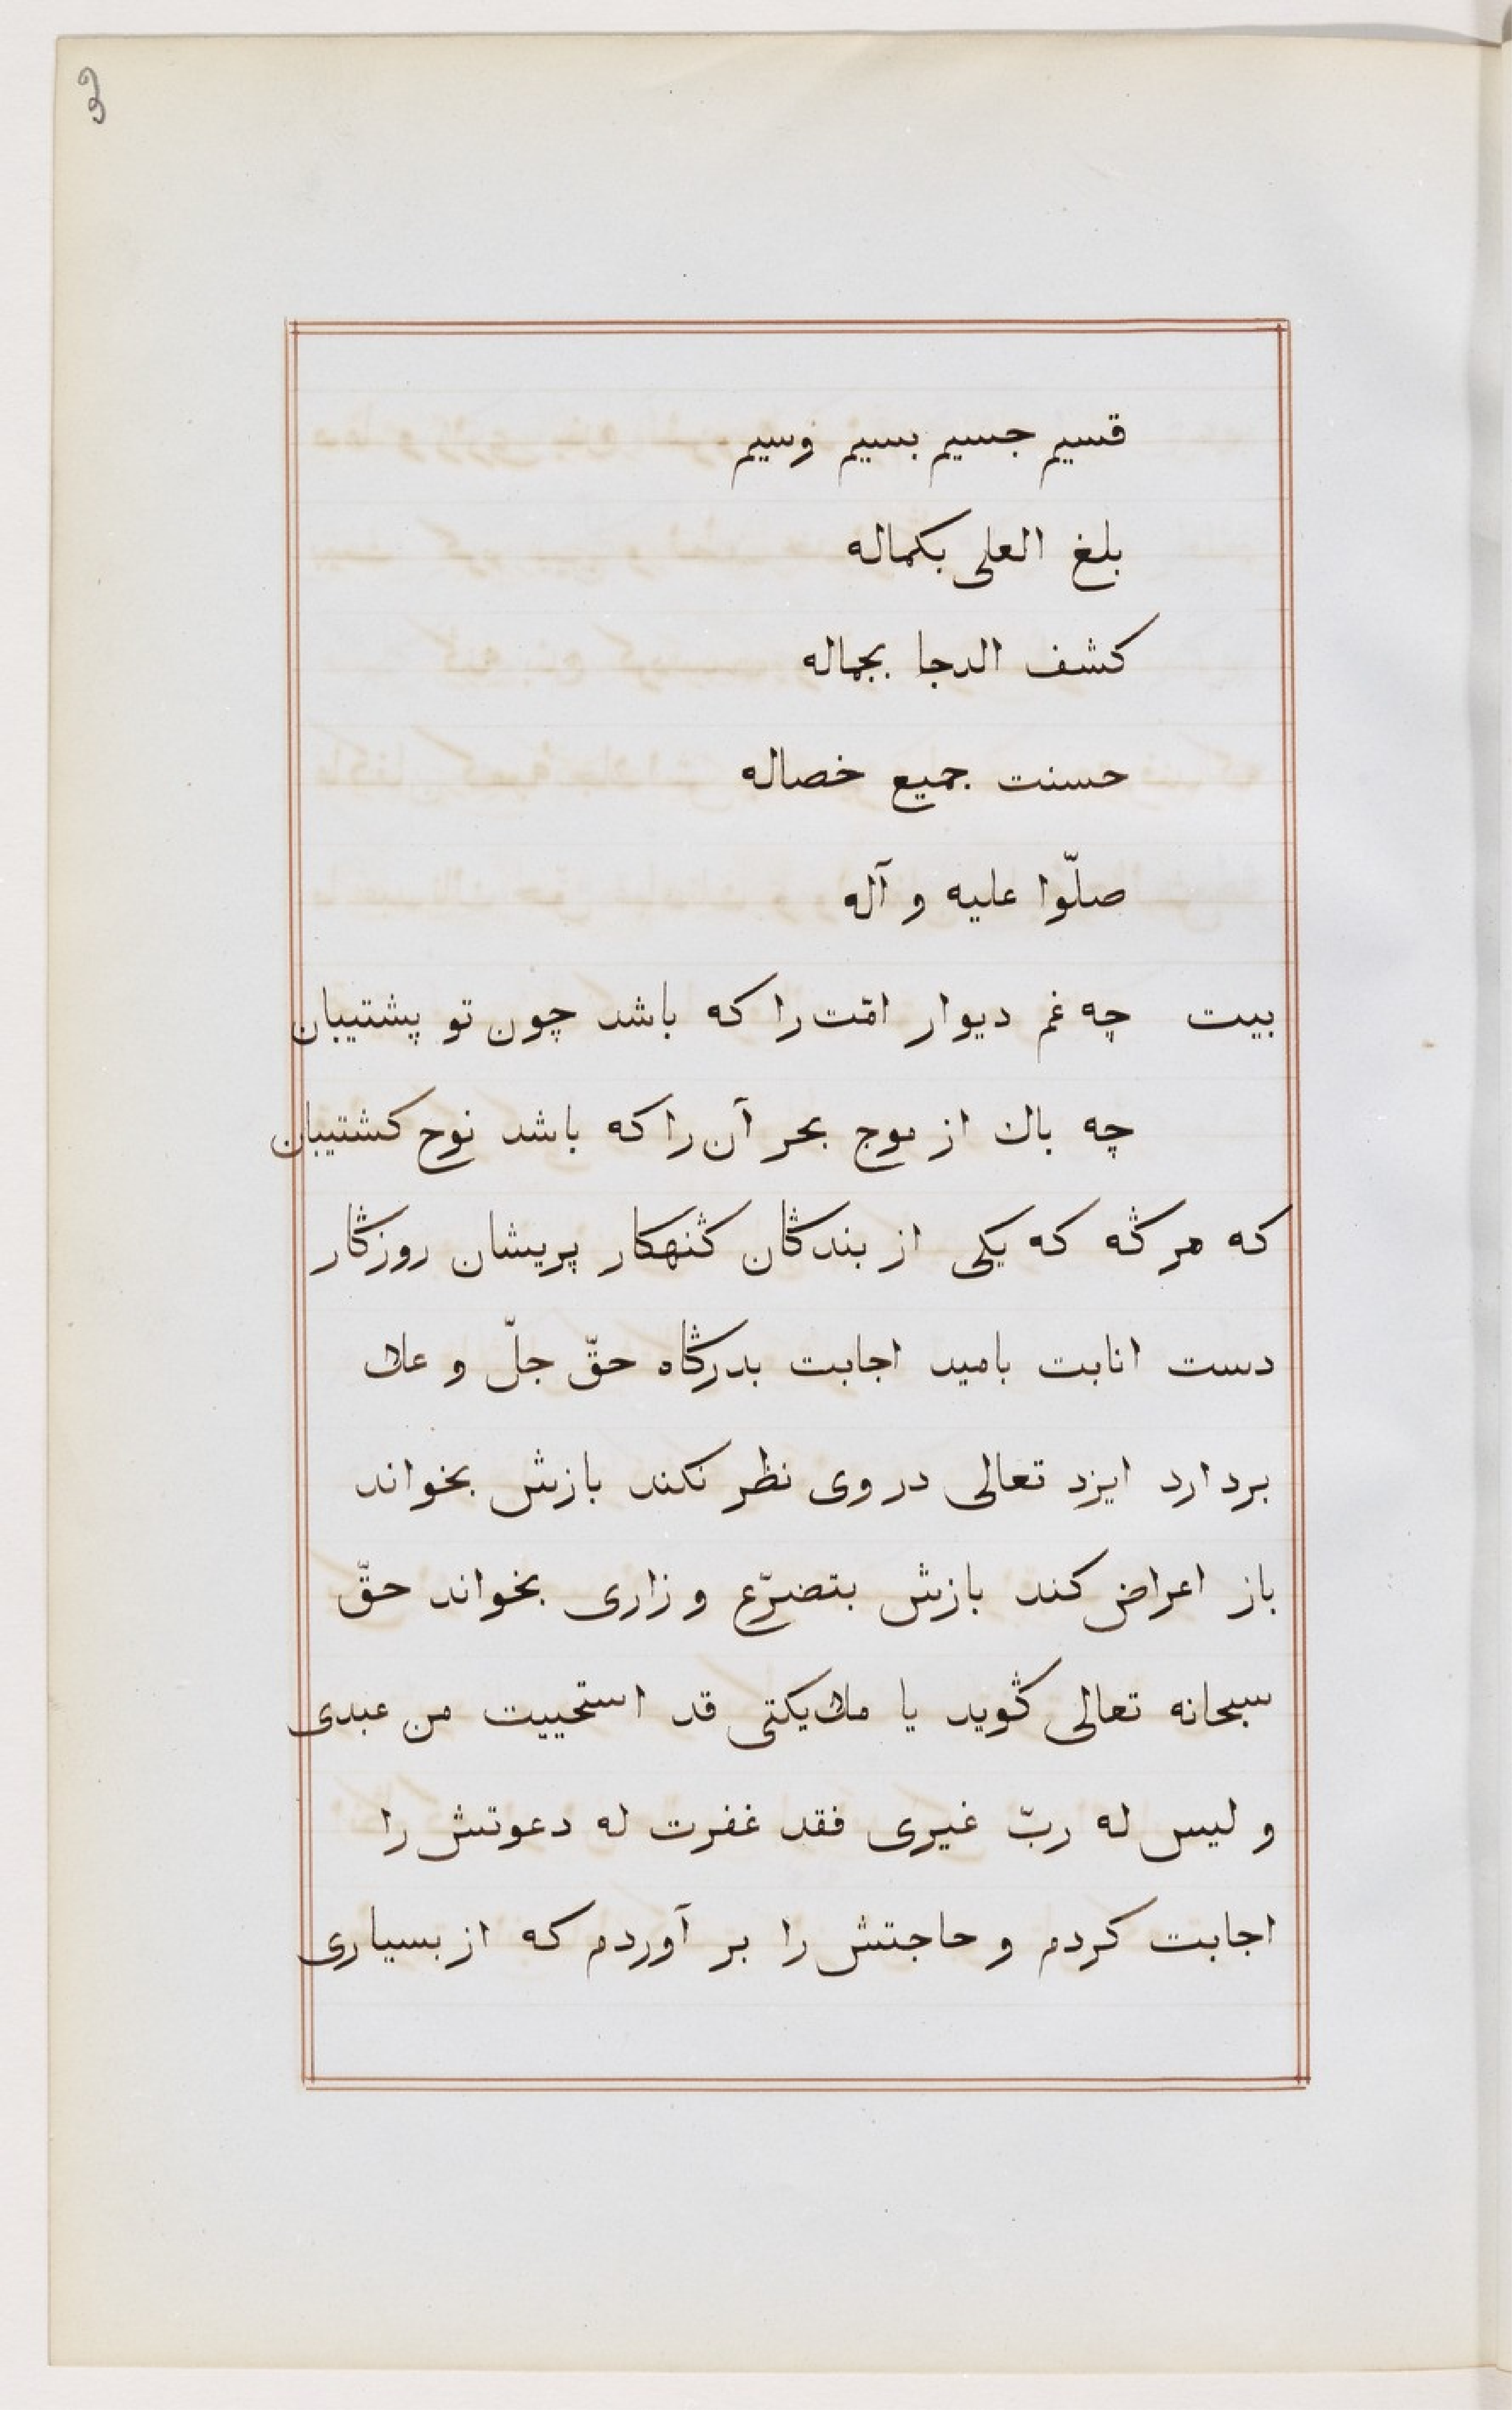 قسیم جسیم بسیم وسیم
بلغ العلی بکماله
کشف الدجا بجماله
حسنت جمیع خصاله
صلّوا علیه و آله
بیت چه غم دیوار امّت را که باشد چون تو پشتیبان
چه باك از موج بحر آن را که باشد نوح کشتیبان
که هر گه که یکی از بندگان گنهکار پریشان روزگار
دست انابت بامید اجابت بدرگاه حقّ جلّ و علا
بردارد ایزد تعالی در وی نظر نکند بازش بخواند
باز اعراض کند بازش بتضرّع و زاری بخواند حقّ
سبحانه تعالی گوید یا ملایکتی قد استحییت من عبدی
و لیس له ربّ غیری فقد غفرت له دعوتش را
اجابت کردم و حاجتش را بر آوردم که از بسیاری